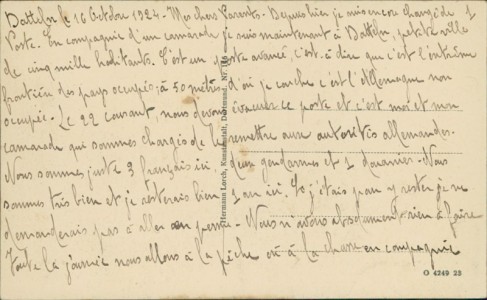 Datteln le 16 Octobre 1924. Mes chers Parents. Depuis hier je suis encore changé de 1
Poste. En compagnie d'un camarade je suis maintenant à Datteln, petite ville
de cinq mille habitants. C'est un poste avancé, c'est à dire que c'est l'extrême
frontière des pays occupés, à 50 mètres d'où je couche c'est l'Allemagne non
occupée. Le 22 courant, nous devons évacuer ce poste et c'est moi et mon
camarade qui sommes chargés de le remettre aux autorités allemandes.
Nous sommes juste 3 français ici. deux gendarmes et 1 douanier. Nous
sommes très bien et je resterais bien 1 an ici. Si j'étais pour y rester je ne
demanderais pas à aller en perme. Nous n'avons absolument rien à faire
Toute la journée nous allons à la pêche où à la chasse en compagnie
Hermann Lorch, Kunstanstalt, Dortmund. Nr.
O 4249 23